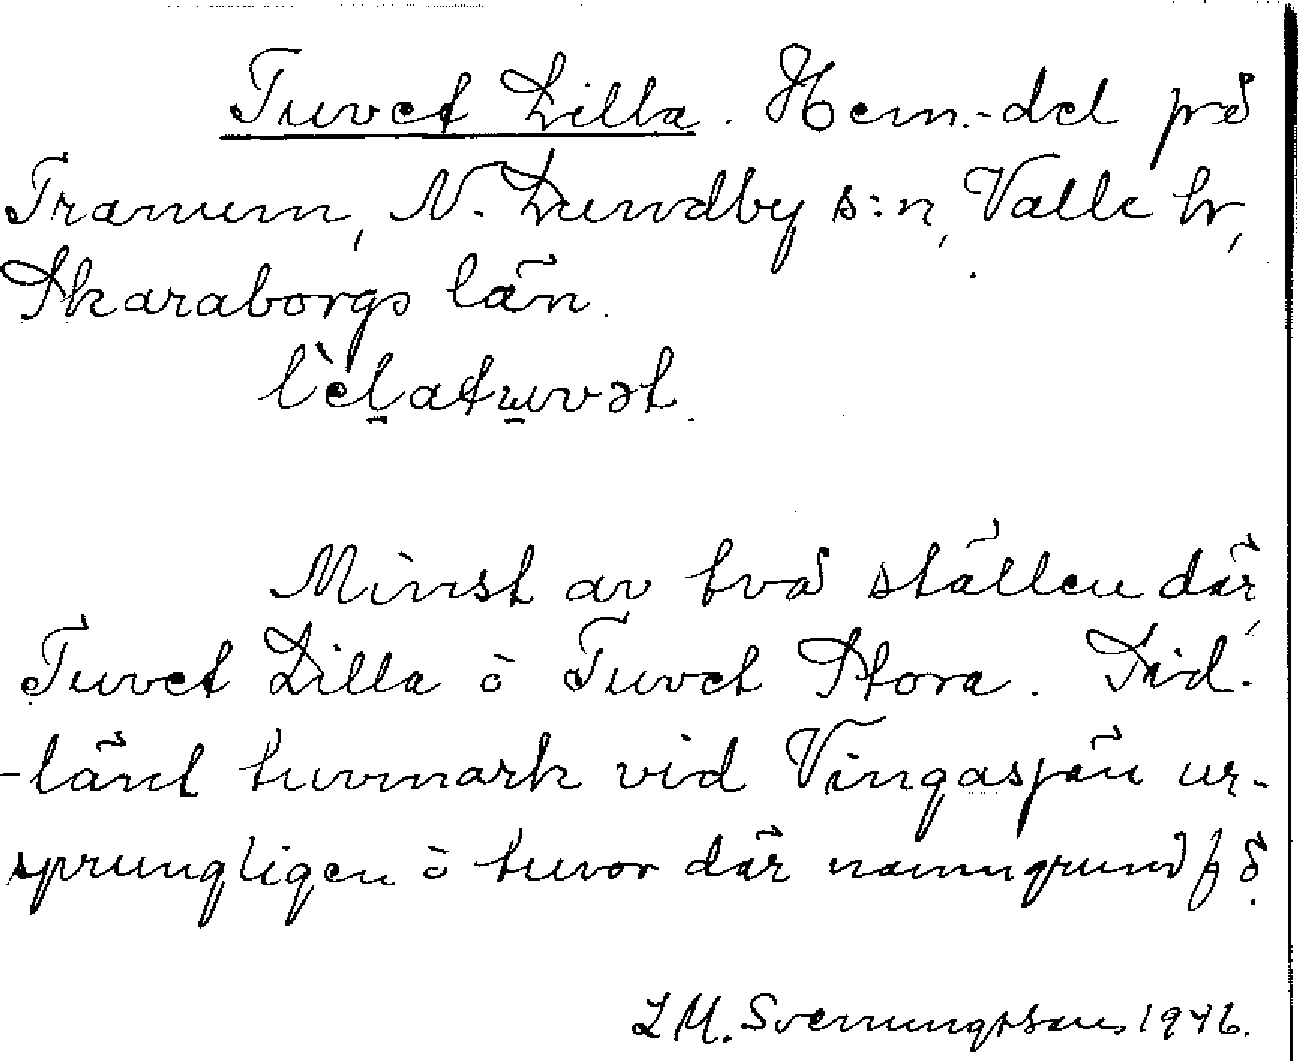 Tuvet Lilla. Hem.-del på
Tranum, N. Lundby s:n, Valle hr,
Skaraborgs län.
lèlatuvət.
Minst av två ställen där,
Tuvet Lilla ö Tuvet Stora. Sid-
-länt tuvmark vid Vingasjön ur-
sprungligen ö tuvor där namngrund f ö.
L M. Svenungsson 1946.